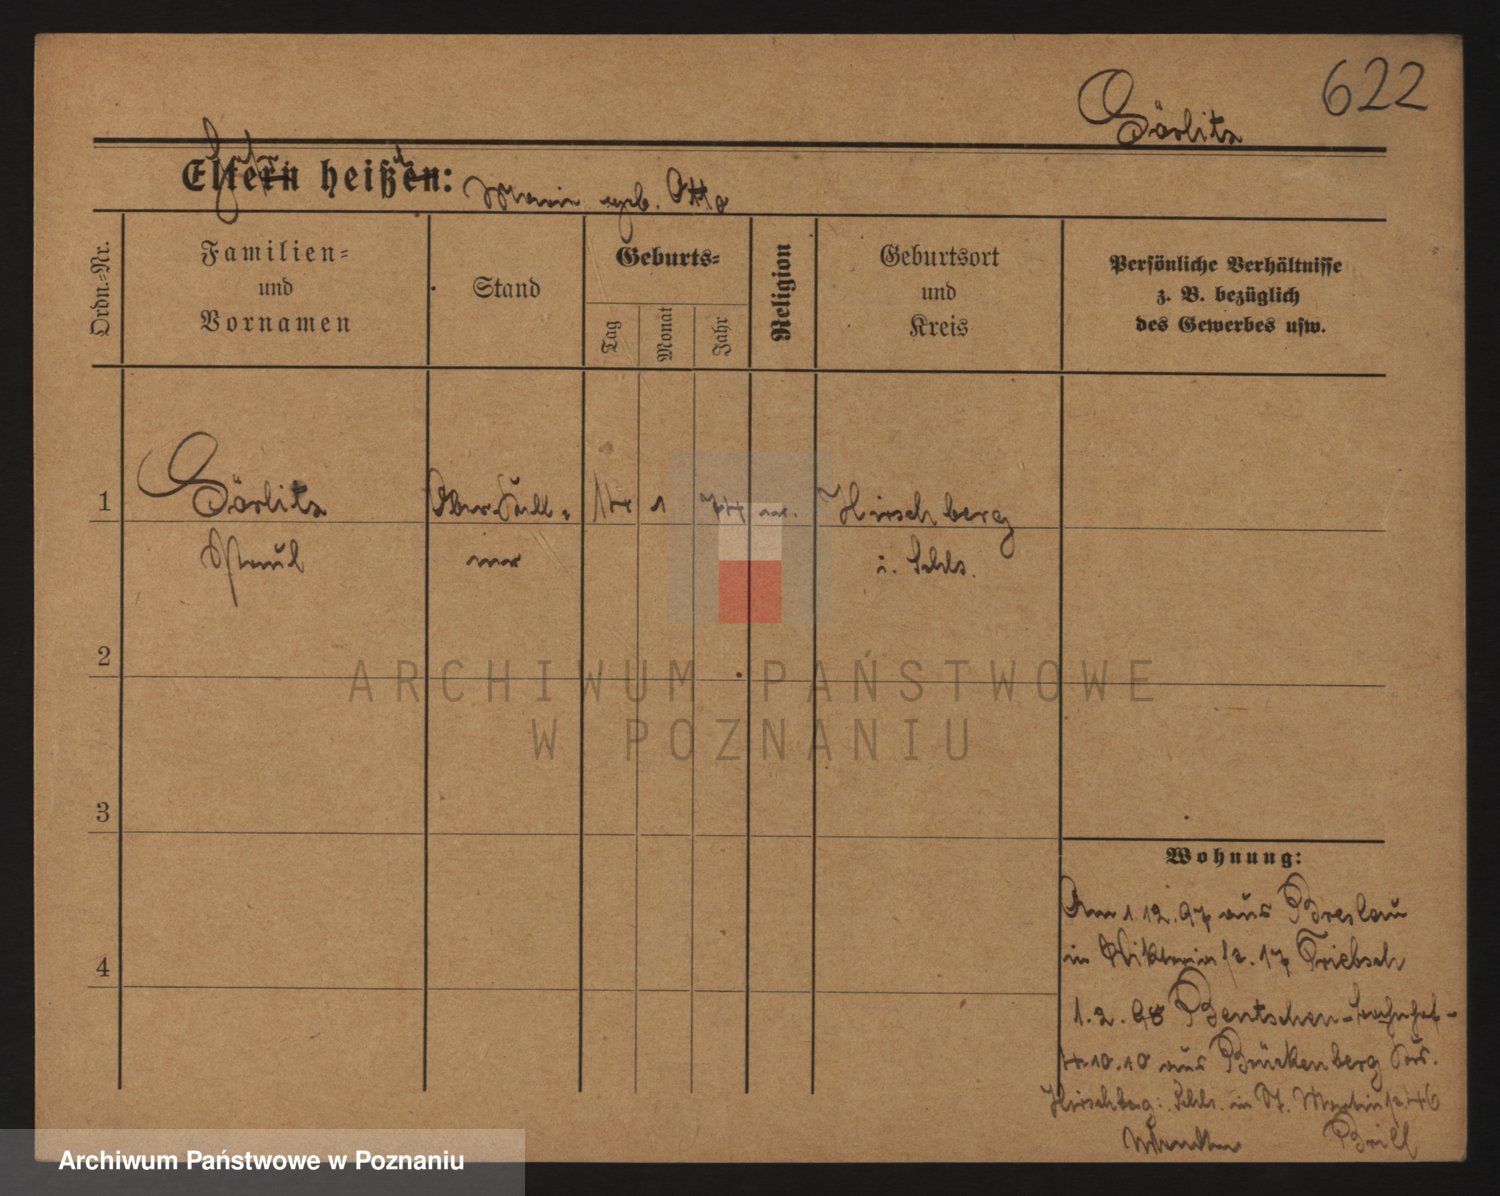 622
Görlitz
Eltern heißen:
Marie geb. Otto
Ordn.-Nr.
Familien-
und
Vornamen
Stand
Geburts-
Tag
Monat
Jahr
Religion
Geburtsort
und
Kreis
Persönliche Verhältnisse
z. B. bezüglich
des Gewerbes usw.
1
Görlitz
Paul
Ober Kell-
ner
14
1
74
Hirschberg
i. Schls.
2
3
4
Wohnung:
Am 1 12. 97 aus Breslau
in Viktoria 17 Triebsch
1. 2. 98 Bentschen-bahnhof-
4.10.10 aus Brückenberg Krs.
Hirschberg i. Schls. in St. Martin 46
Brill
ARCHIWUM PAŃSTWOWE
W POZNANIU
Archiwum Państwowe w Poznaniu